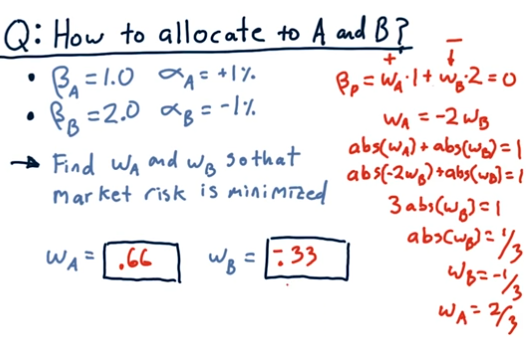 Q: How to allocate to A and B?
• βA = 1.0 αA = +1%
• βB = 2.0 αB = -1%
→ Find wA and wB so that
market risk is minimized
wA = .66 wB = -.33
+ −
βp = wA·1 + wB·2 = 0
wA = -2wB
abs(wA) + abs(wB) = 1
abs(-2wB) + abs(wB) = 1
3 abs(wB) = 1
abs(wB) = 1/3
wB = -1/3
wA = 2/3